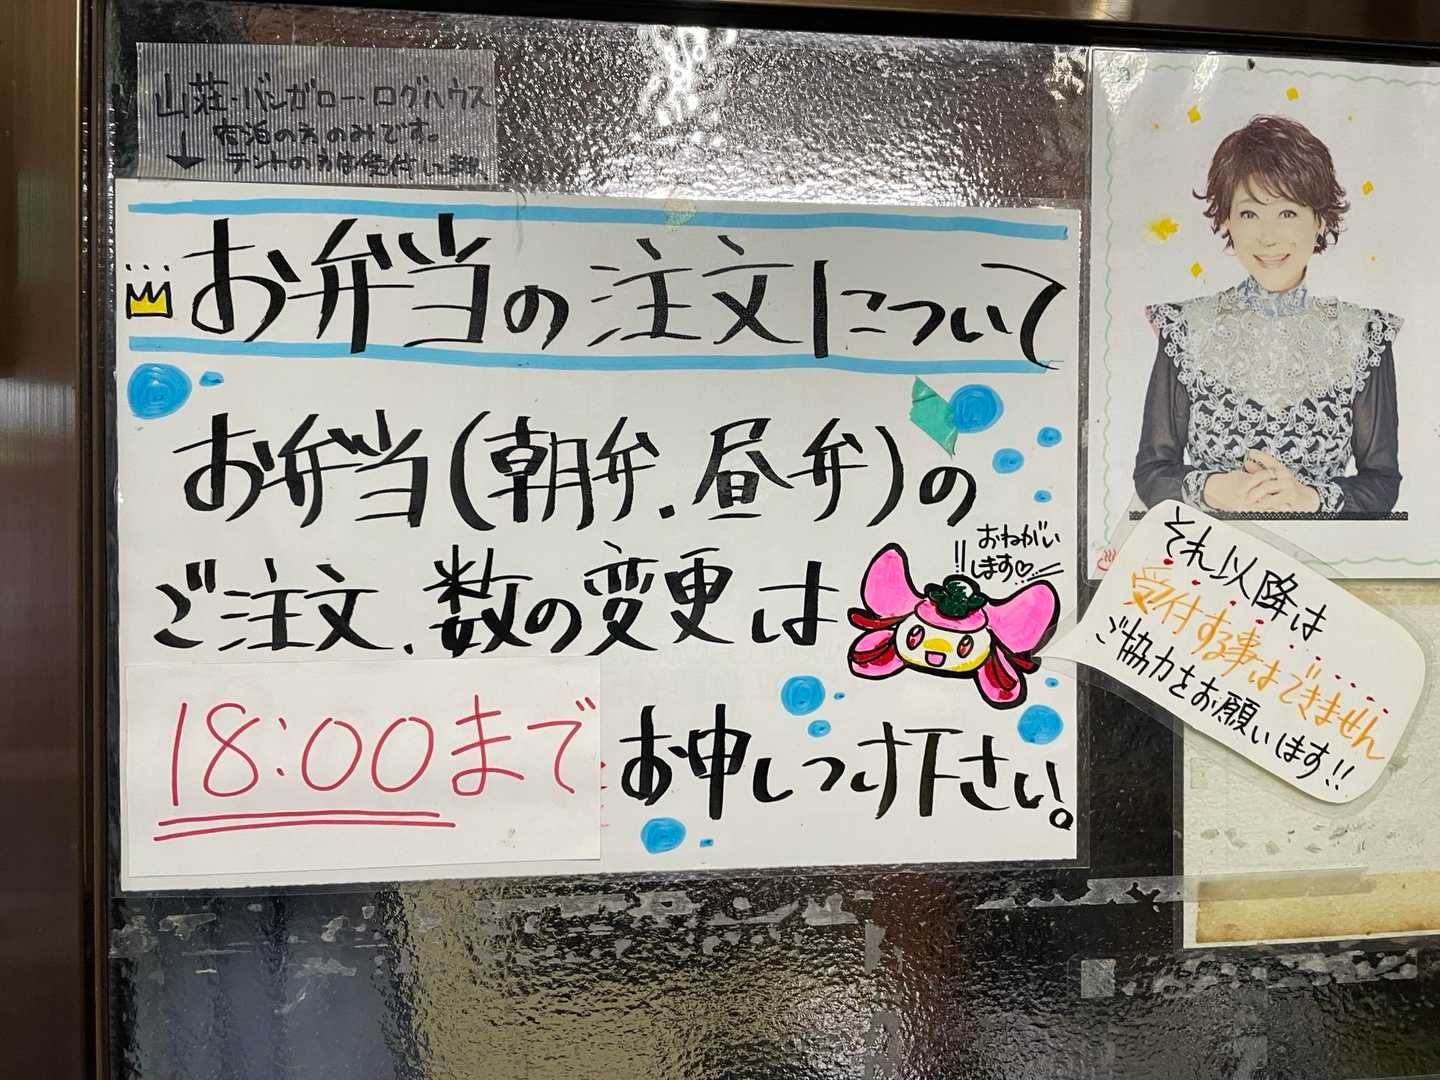 山荘・バンガロー・ログハウス
宿泊の方のみです。
テントの方は受付してません
お弁当の注文について
お弁当(朝弁、昼弁)の
ご注文、数の変更は
おねがい
します♡
!!
18:00まで
お申しつけ下さい。
それ以降は
受付する事はできません
ご協力をお願いします!!